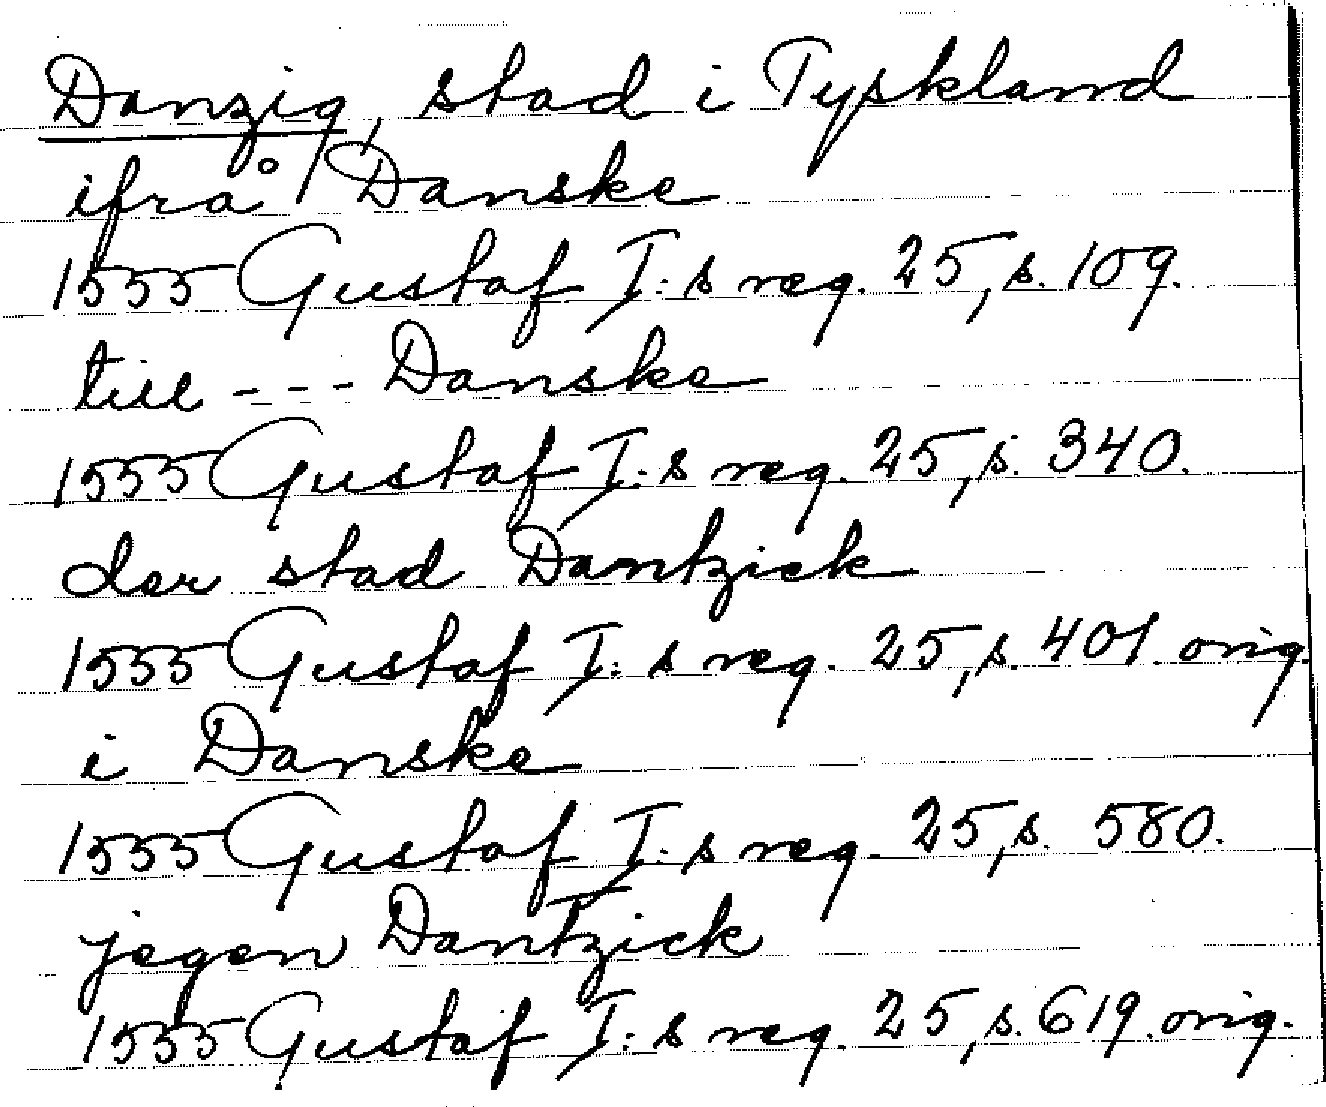 Danzig, stad i Tyskland
ifrå Danske
1555 Gustaf I:s reg. 25, s. 109.
till - - - Danske
1555 Gustaf I:s reg. 25, s. 340.
der stad Dantzick
1555 Gustaf I:s reg. 25, s. 401. orig.
i Danske
1555 Gustaf I:s reg. 25, s. 580.
jegen Dantzick
1555 Gustaf I:s reg. 25, s. 619. orig.